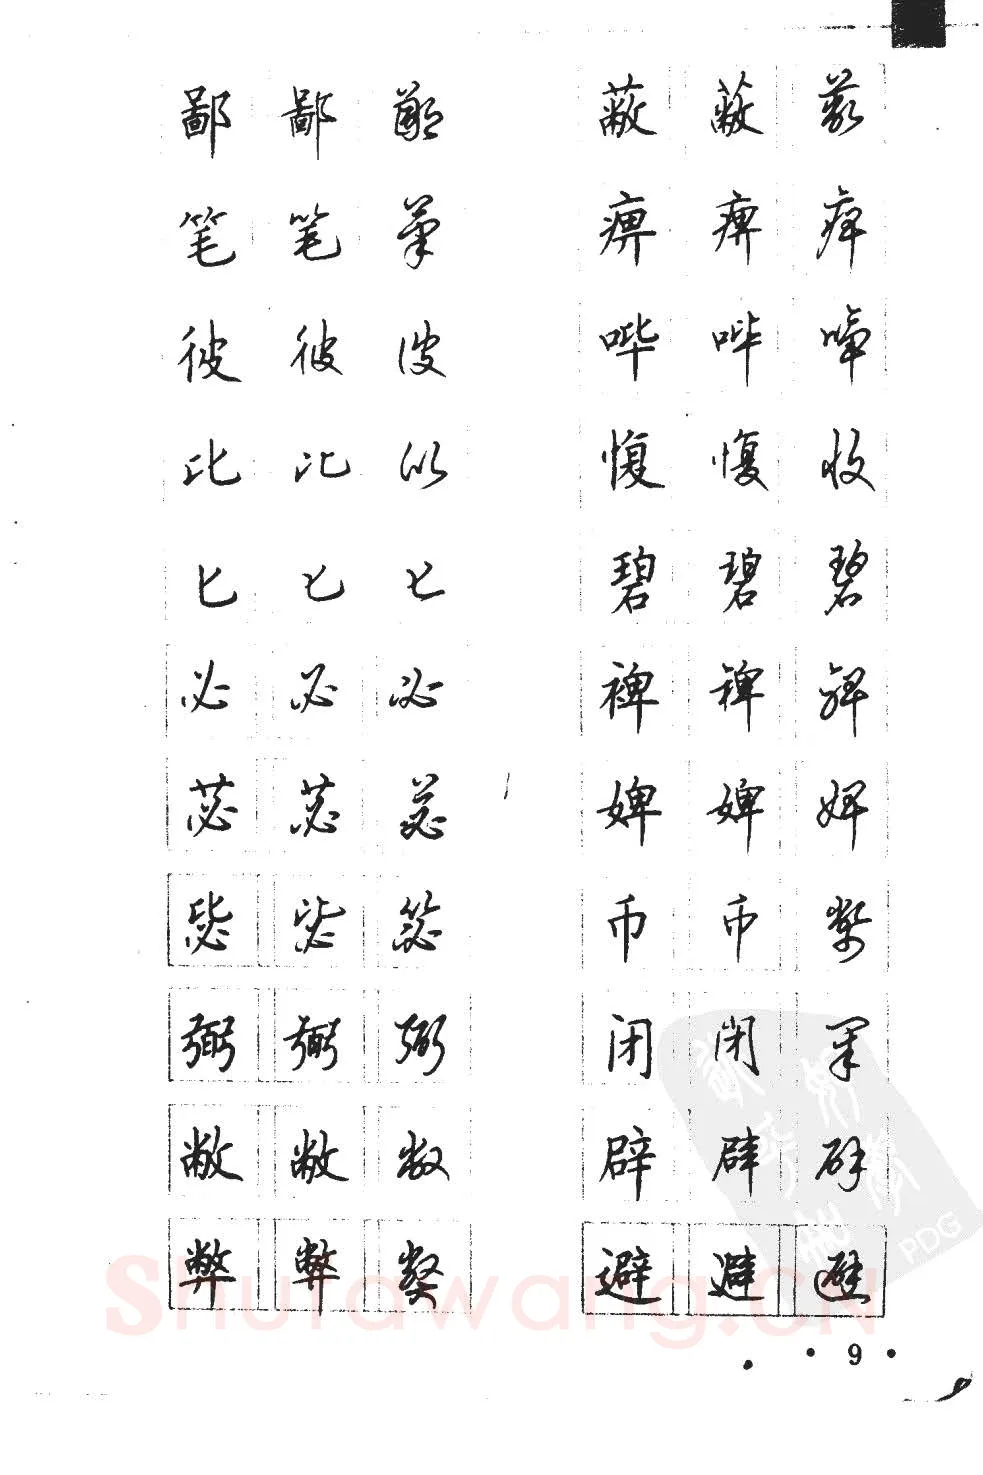 鄙 鄙 鄙 蔽 蔽 蔽
笔 笔 笔 痹 痹 痹
彼 彼 彼 哔 哔 哔
比 比 比 愎 愎 愎
匕 匕 匕 碧 碧 碧
必 必 必 裨 裨 裨
苾 苾 苾 婢 婢 婢
毖 毖 币 币 币
弼 弼 弼 闭 闭 闭
敝 敝 敝 辟 辟 辟
弊 弊 弊 避 避 避
Shufawang.CN
PDG
• 9 •